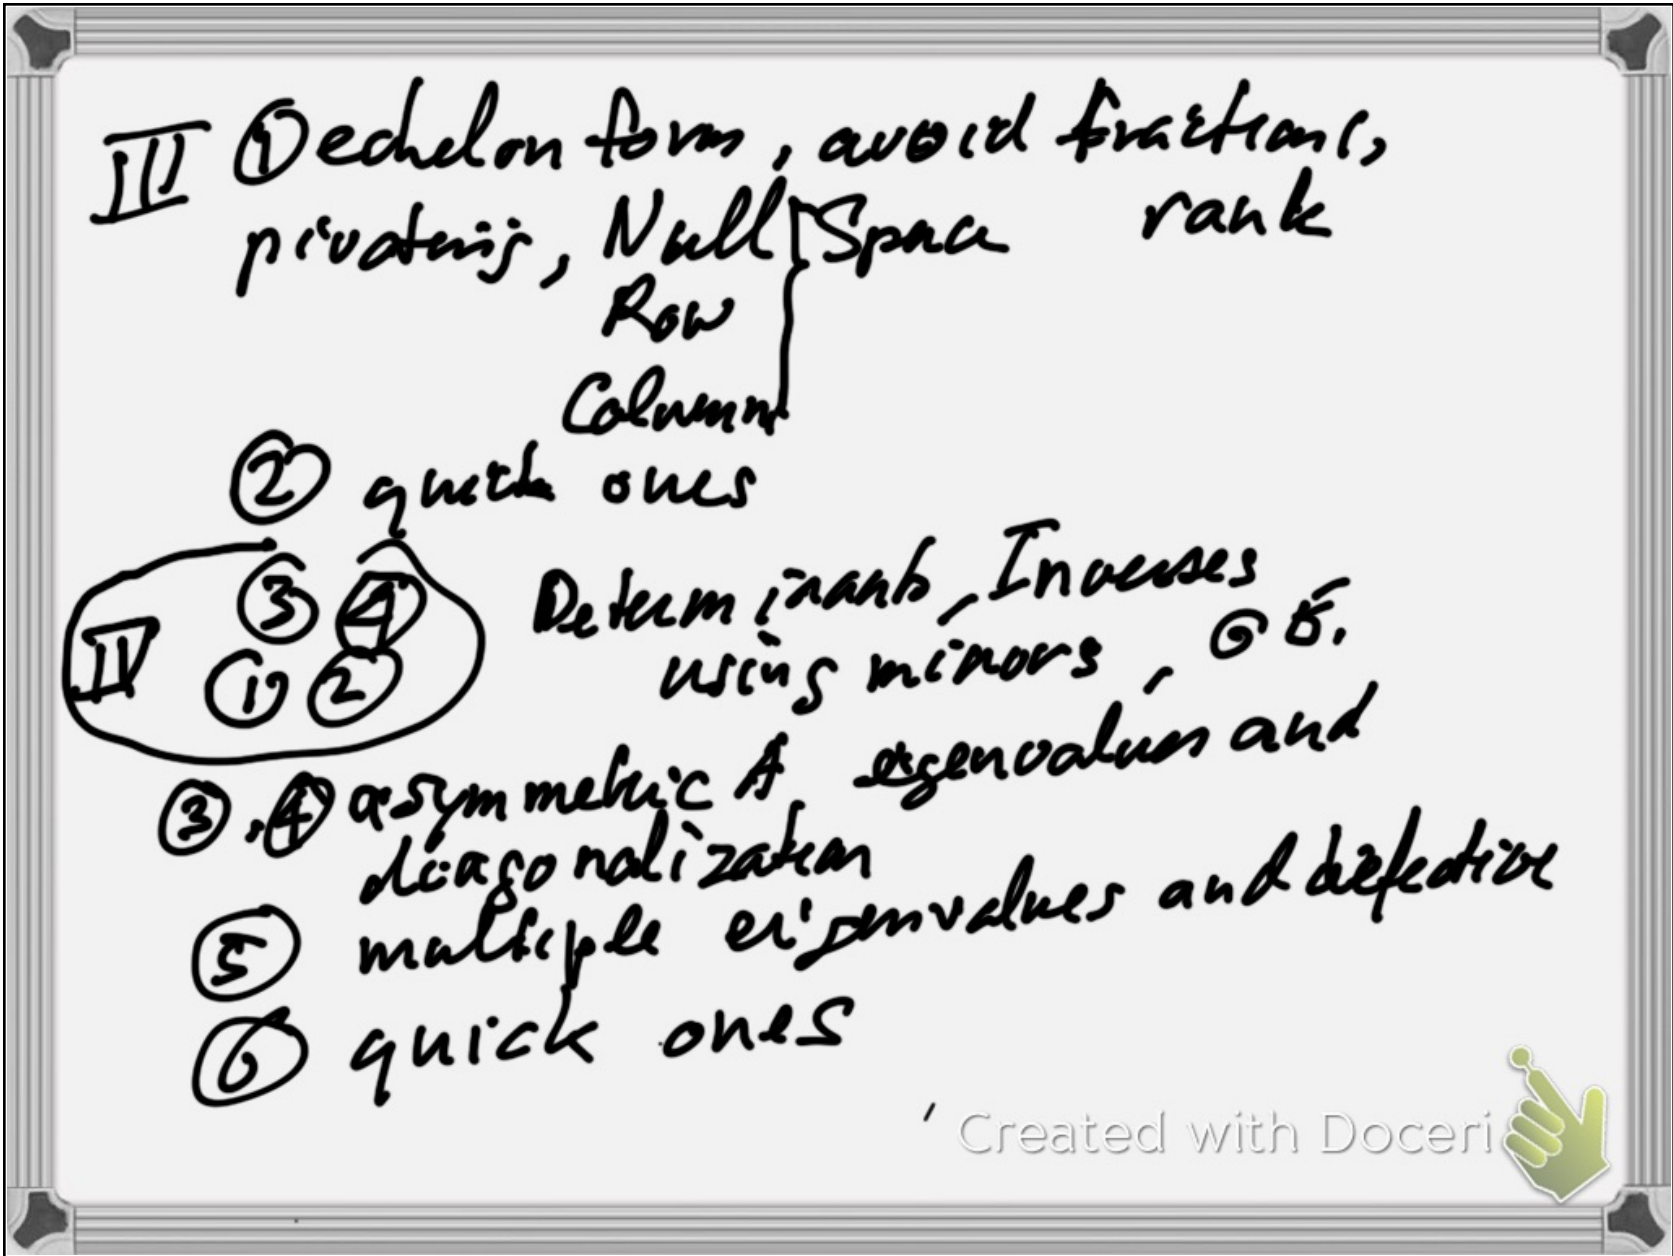 III ① echelon form, avoid fractions,
pivoting, Null Space rank
Row
Column
② quick ones
③ ④ Determinants, Inverses
IV ① ② using minors,
③, ④ asymmetric A eigenvalues and
diagonalization
⑤ multiple eigenvalues and defective
⑥ quick ones
Created with Doceri